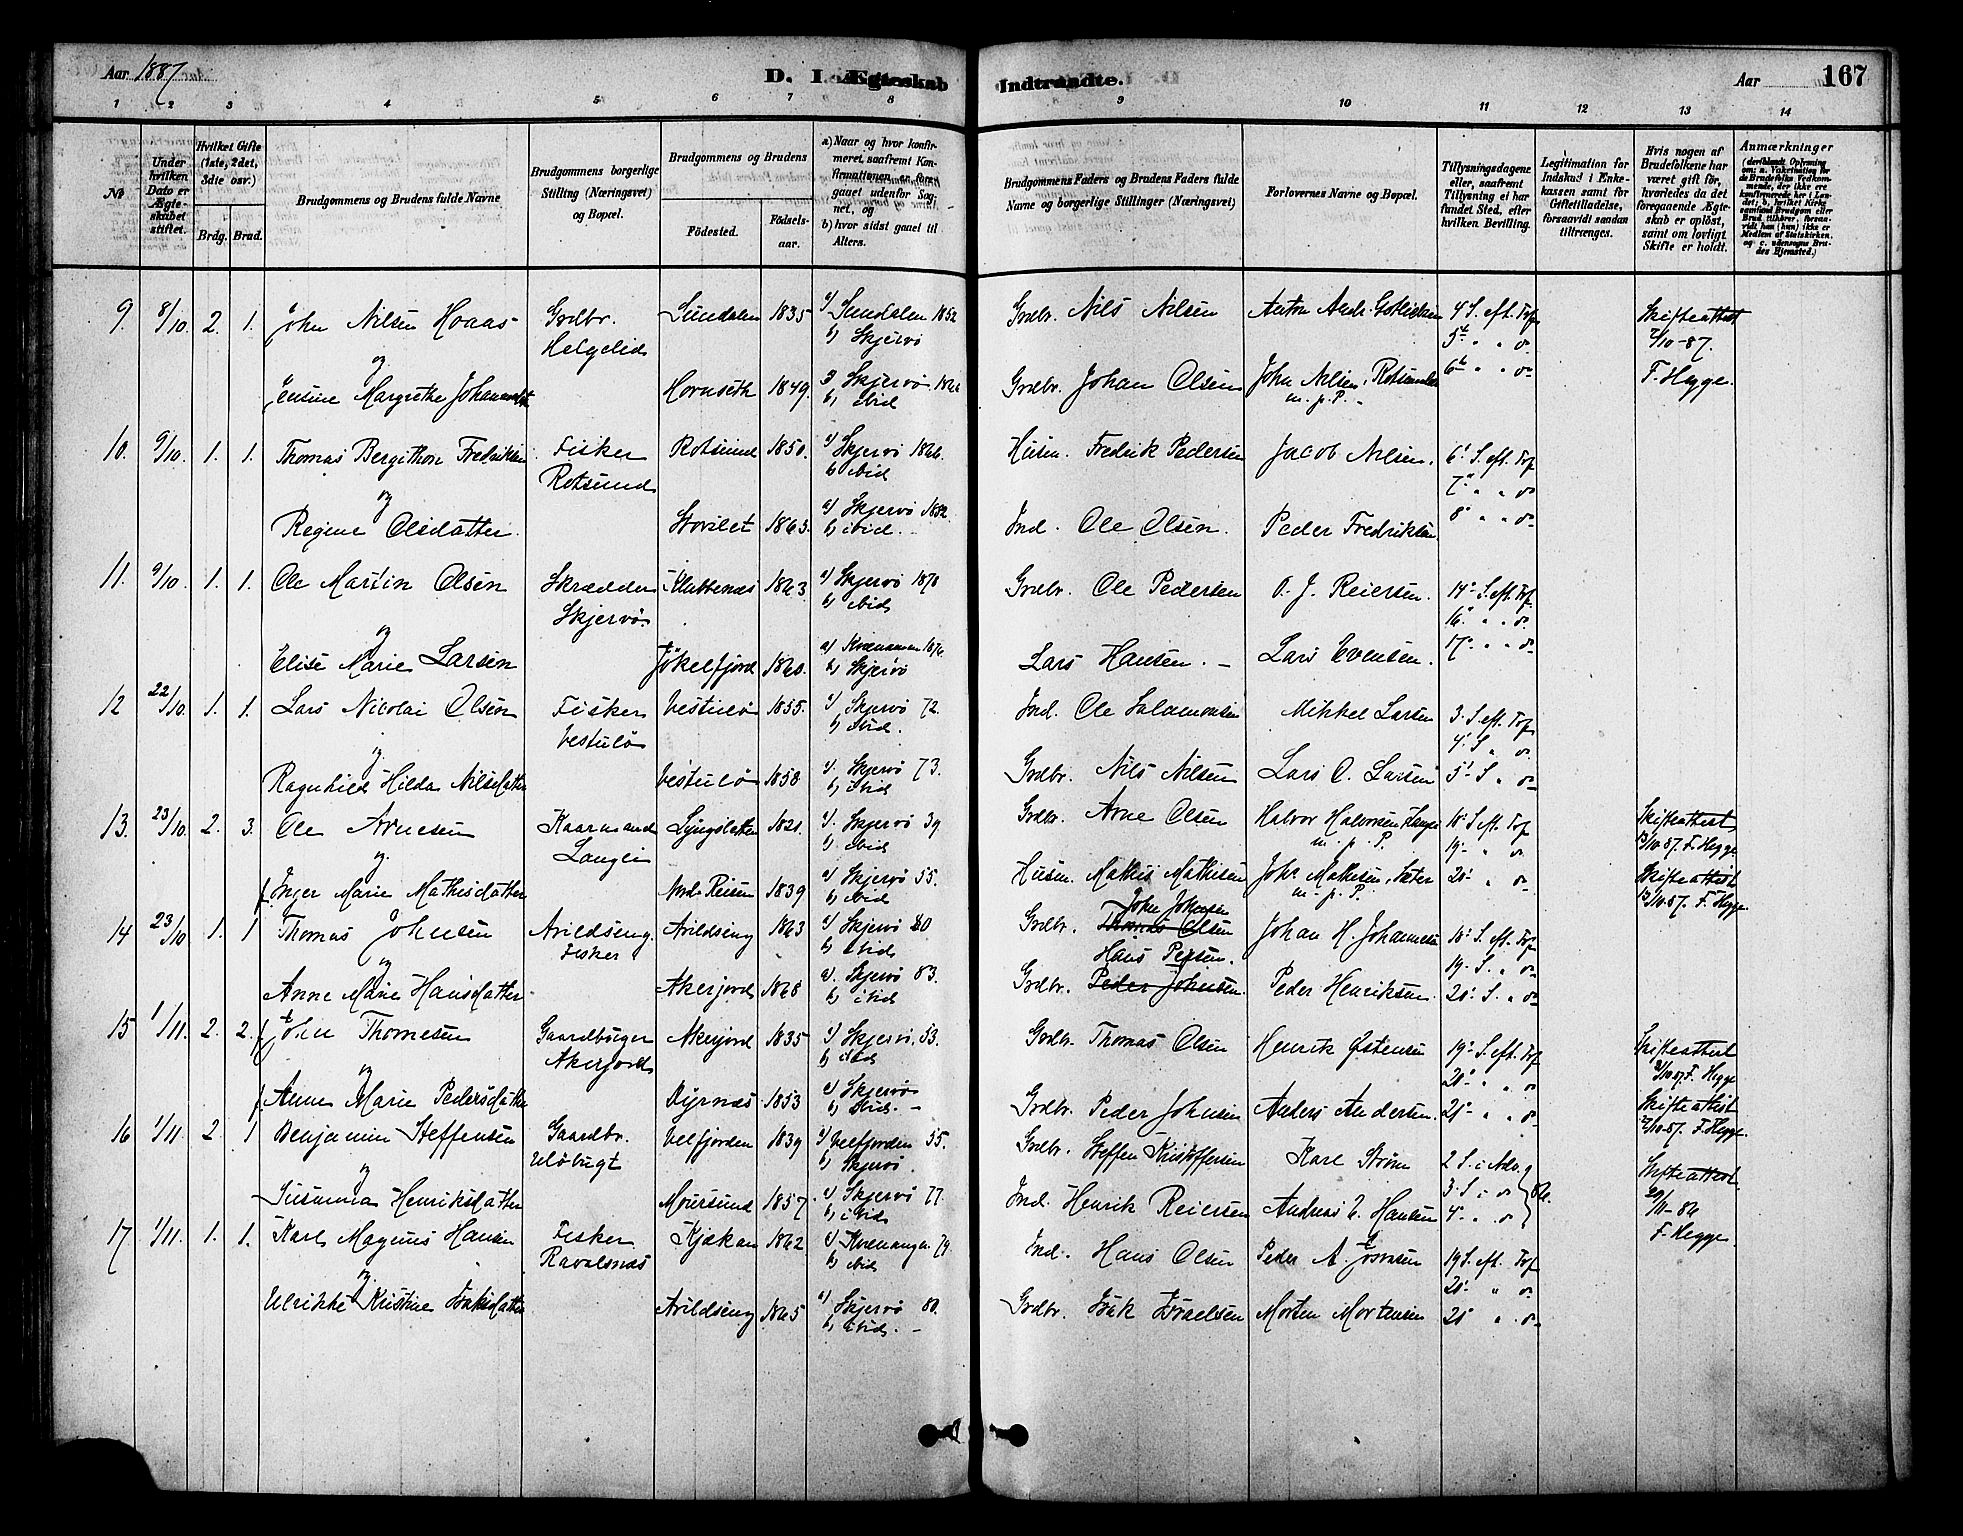 Aar 1887
D. I. Ægteskab Indtraadte.
Aar 167
1 2 3 4 5 6 7 8 9 10 11 12 13 14
No
Under hvilken Dato er Ægteskabet stiftet.
Hvilket Gifte (1ste, 2det, 3die osv.)
Brdg. Brud.
Brudgommens og Brudens fulde Navne
Brudgommens borgerlige Stilling (Næringsvei) og Bopæl.
Brudgommens og Brudens
Födested.
Födselsaar.
a) Naar og hvor konfirmeret, saafremt Konfirmationen er foregaaet udenfor Sognet, og
b) hvor sidst gaaet til Alters.
Brudgommens Faders og Brudens Faders fulde Navne og borgerlige Stillinger (Næringsvei)
Forlovernes Navne og Bopæl.
Tillysningsdagene eller, saafremt Tillysning ei har fundet Sted, efter hvilken Bevilling.
Legitimation for Indskud i Enkekassen samt for Giftetilladelse, forsaavidt saadan tiltrænges.
Hvis nogen af Brudefolkene har været gift för, hvorledes da det foregaaende Ægteskab er oplöst, samt om lovligt Skifte er holdt.
Anmærkninger
9. 8/10. 2. 1. John Nilsen Hoaas Grdbr. Helgelid Sundalen 1835 a) Sundalen 1852 b) Skjervö Grdbr. Nils Nilsen 4 S. eft. Trf
og 5te " " do 6te " " do Skifteattest 7/10-87. F. Hegge.
Jensine Margrethe Hornseth 1849. a) Skjervö b) ibid Grdbr. Johan Olsen John Nilsen, Rotsundet m. p. P.
10. 9/10. 1. 1. Thomas Bergithon Fredriksen Fisker Rotsund Rotsund 1850. a) Skjervö 1866. b) ibid Husm. Fredrik Pedersen Jacob Nilsen. 6' S. eft. Trf
og 7' " " do
Regine Olsdatter. 1863. a) Skjervö b) ibid. Ind. Ole Olsen. Peder Fredriksen 8' " " do
11. 9/10. 1. 1. Ole Martin Olsen Skrædder Skjervö Klubbenæs 1863. a) Skjervö 1878 b) ibid Grdbr. Ole Pedersen O. J. Reiersen. S. eft. Trf
og 16' " " do
Elise Marie Larsen Jökelfjord a) Kvænangen b) Skjervö Lars Hansen. Lars Evensen. 17' " " do
12 22/10. 1. 1. Lars Nicolai Olsen Fisker Vestulö Vestulö 1855. a) Skjervö 72. b) ibid. Ind. Ole Salamonsen Mikkel Larsen 3' S. eft. Trf
og 4' S " do
Ragnhild Hilda Nilsdatter Vestulö 1858 a) Skjervö 73. b) ibid Grdbr. Nils Nilsen Lars O. Larsen 5' S " do
13. 23/10. 2. 3. Ole Arnesen Kaarmand Langli Lyngsletten a) Skjervö 39 b) ibid Grdbr. Arne Olsen Halvor Halvorsen m. p. P. 18' S. eft. Trf Skifteattest 13/10-87. F. Hegge
og 19' " do
f. Inger Marie Mathisdatter Nord-Reisen 1839 a) Skjervö 55. b) ibid Husm. Mathis Mathisen John Mathisen, Sæter m. p. P. 20' " do Skifteattest 13/10-87. F. Hegge
14 23/10 1. 1 Thomas Johnsen Arildseng. Fisker Arildseng 1863 a) Skjervö 80 b) ibid Grdbr. John Johnsen Thomas Olsen Johan H. Johannesen 18' S. eft. Trf
og 19' S. " do
Anne Marie Hansdatter Akerfjord 1868 a) Skjervö 83. b) ibid Grdbr. Hans Persen. Peder Johnsen. Peder Henriksen. 20' S. " do
15 1/11. 2. 2. John Thomesen Gaardbruger Akerfjord Akerfjord 1835 a) Skjervö, 53. b) ibid Grdbr. Thomas Olsen Henrik Östensen 19' S. eft. Trf Skifteattest F. Hegge
og 20' " do
f. Anne Marie Pedersdatter Dyrnæs 1853 a) Skjervö b) ibid. Grdbr. Peder Johnsen Anders Andersen. 21' " do Skifteattest F. Hegge.
16 1/11. 2. 1 Benjamin Steffensen Gaardbr. Ulöbugt Velfjorden 1839 a) Velfjorden 55. b) Skjervö. Grdbr. Steffen Kristoffersen Karl Ström 2 S. i Adv.
og 3. S i do Skifteattest 29/11-86 F. Hegge.
Susanna Henriksdatter Maursund 1857 a) Skjervö 77. b) ibid Ind. Henrik Reiersen Andreas E. Hansen 4' " do
17 1/11. 1. 1. Karl Magnus Hansen Fisker Ravelsnæs Kjækan 1862 a) Kvænangen 79. b) ibid Ind. Hans Olsen Peder A. 19 S. eft. Trf
og. 20' " do
Ulrikke Kristine Isaksdatter Arildseng 1865 a) Skjervö 80. b) ibid. Grdbr. Isak Israelsen Morten Mortensen " do